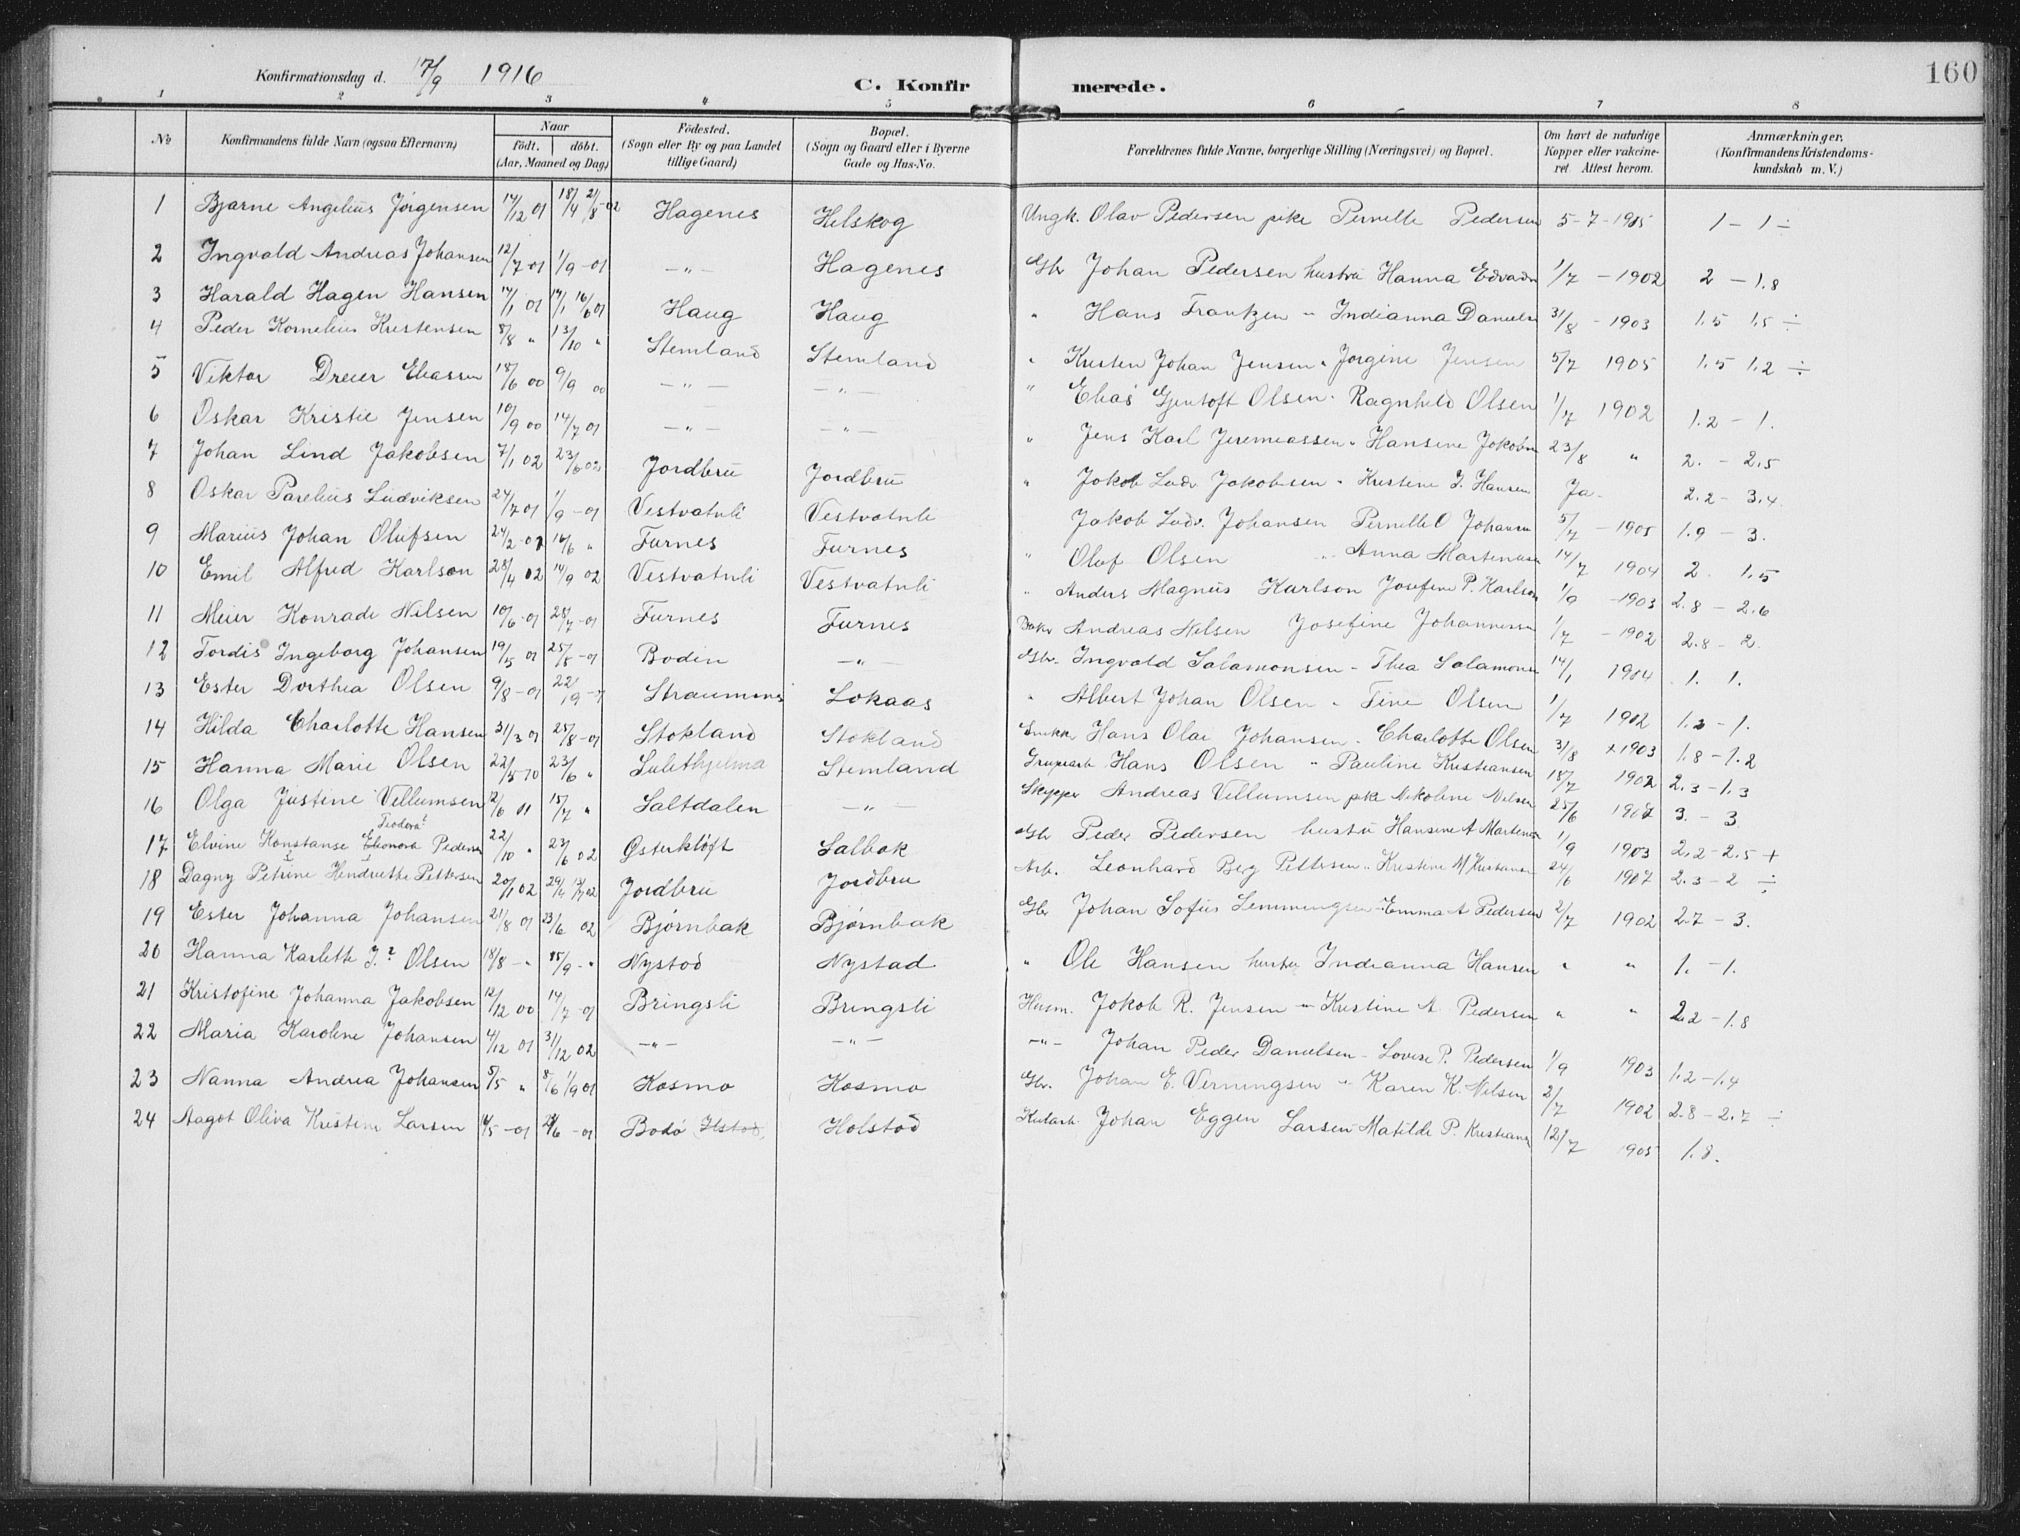 160
Konfirmationsdag d. 17/9 1916 C. Konfirmerede.
1 2 3 4 5 6 7 8
No Konfirmandens fulde Navn (ogsaa Efternavn) Naar født. døbt. (Aar, Maaned og Dag) Fødested. (Sogn eller By og paa Landet tillige Gaard) Bopæl. (Sogn og Gaard eller i Byerne Gade og Hus-No. Forældrenes fulde Navne, borgerlige Stilling (Næringsvei) og Bopæl. Om havt de naturlige Kopper eller vakcineret Attest herom. Anmærkninger. (Konfirmandens Kristendomskundskab m. V.)
1 Bjarne Angelius Jørgensen 14/12 01 18/4 21/8-02 Hagenes Helskog Ungk. Olav Pedersen pike Pernelle Pedersen 5-7-1905 1-1 ÷
2 Ingvald Andreas Johansen 12/7-01 1/9-01 -"- Hagenes Gbr Johan Pedersen hustru Hanna 1/7-1902 2-1.8
3 Harald Hagen Hansen 14/1 01 Haug Haug " Hans Frantzen " Indianna 31/8-1903 1.5 1.5 ÷
4 Peder Kornelius Kristensen 8/8 " 13/10 " Stemland Stemland " Kristen Johan Jensen " Jørgine Jensen 5/7 1905 1.5 1.2 ÷
5 Viktor Dreier Eliassen 18/6 00 9/9 00 -"- -"- " Elias Gjentoft Olsen - Ragnhild Olsen 1/7 1902 1.2-1.
6 Oskar Kristie Jensen 10/9 00 14/7 01 -"- -"- " Jens Karl Jeremiassen " Hansine 23/8 " 2.-2,5
7 Johan Lind Jakobsen 7/1 02 23/6 02 Jordbru Jordbru " Jakob Ludv Jakobsen - Kristine J. Hansen Ja- 2.2-3.4
8 Oskar Parelius Ludviksen 24/7 01 1/9-01 Vestvatnli Vestvatnli Jakob Ludv. Johansen Pernelle O Johansen 5/7-1905 1.9-3.
9 Marius Johan Olufsen 24/2-01 16/6 " Furnes Furnes " Oluf Olsen " Anna 14/7 1904 2. 1.5
10 Emil Alfred Karlson 28/4 02 14/9 02 Vestvatnli Vestvatnli " Anders Magnus Karlson Josefine P. Karlson 1/9-1903 2.8-2.6
11 Meier Konradi Nilsen 10/6-01 28/7-01 Furnes Furnes Andreas Nilsen Josefine Johannessen 1/7-1902 2.8-2
12 Tordis Ingeborg Johansen 19/5 01 25/8-01 Bodin -"- Gbr. Ingvald Salamonsen - Thea Salamonsen 14/1 1904 1. 1.
13 Ester Dorthea Olsen 9/8-01 22/9 Straumsnes Lokaas " Albert Johan Olsen - Tine Olsen 1/7 1902 1.2-1.
14 Hilda Charlotte Hansen 31/3 01 25/8-01 Stokland Stokland Hans Olai Johansen - Charlotte Olsen 31/8 1903 1.8-1.2
15 Hanna Marie Olsen 22/5 23/6 " Sulethjelma Stemland Grubearb Hans Olsen " Pauline Kristiansen 18/7 1902 2.3-1.3
16 Olga Justine Villumsen 12/6 01 15/7 " Saltdalen -"- Skipper Andreas Villumsen pike Nikoline Nilsen 25/6 3.-3
17 Elvine Konstanse Teodora Eleonora Pedersen 22/10 " 23/6 02 Østerkløft Salbak Gbr Peder Pedersen hustru Hansine A Martinsen 1/9 1903 2.2-2.5 +
18 Dagny Petrine Hendrette Pettersen 20/1 02 Jordbru Jordbru Arb. Leonhard Berg Pettersen " Kristine M Kristiansen 24/6 1907 2.3-2 ÷
19 Ester Johanna Johansen 21/8 01 23/6 02 Bjørnbak Bjørnbak Gbr Johan Sofus Lemmingsen - Emma A Pedersen 2/7 1902 2.7-3.
20 Hanna Karlette J? Olsen 18/8-" 15/9-" Nystad Nystad " Ole Hansen hustru Indianna Hansen " " 1.-1.
21 Kristofine Johanna Jakobsen 12/12 00 14/7-01 Bringsli Bringsli Husm. Jakob R. Jensen " Kristine A. Pedersen " " 2.2-1.8
22 Maria Karoline Johansen 4/12 01 31/12 02 -"- -"- -"- Johan Peder Danielsen - Lovise P. Pedersen 1/9 1903 1.2-1.4
23 Nanna Andrea Johansen 5/5 " 8/6 1/9 01 Kosmo Kosmo Gbr. Johan E. Verningsen " Karen K. Nilsen 2/7 1902 2.8-2.7 ÷
24 Aagot Oliva Kristine Larsen 4/5-01 /6-01 Bodø Holstad Johan Eggen Larsen - Matilde P. Kristiansen 12/7 1905 1.8.